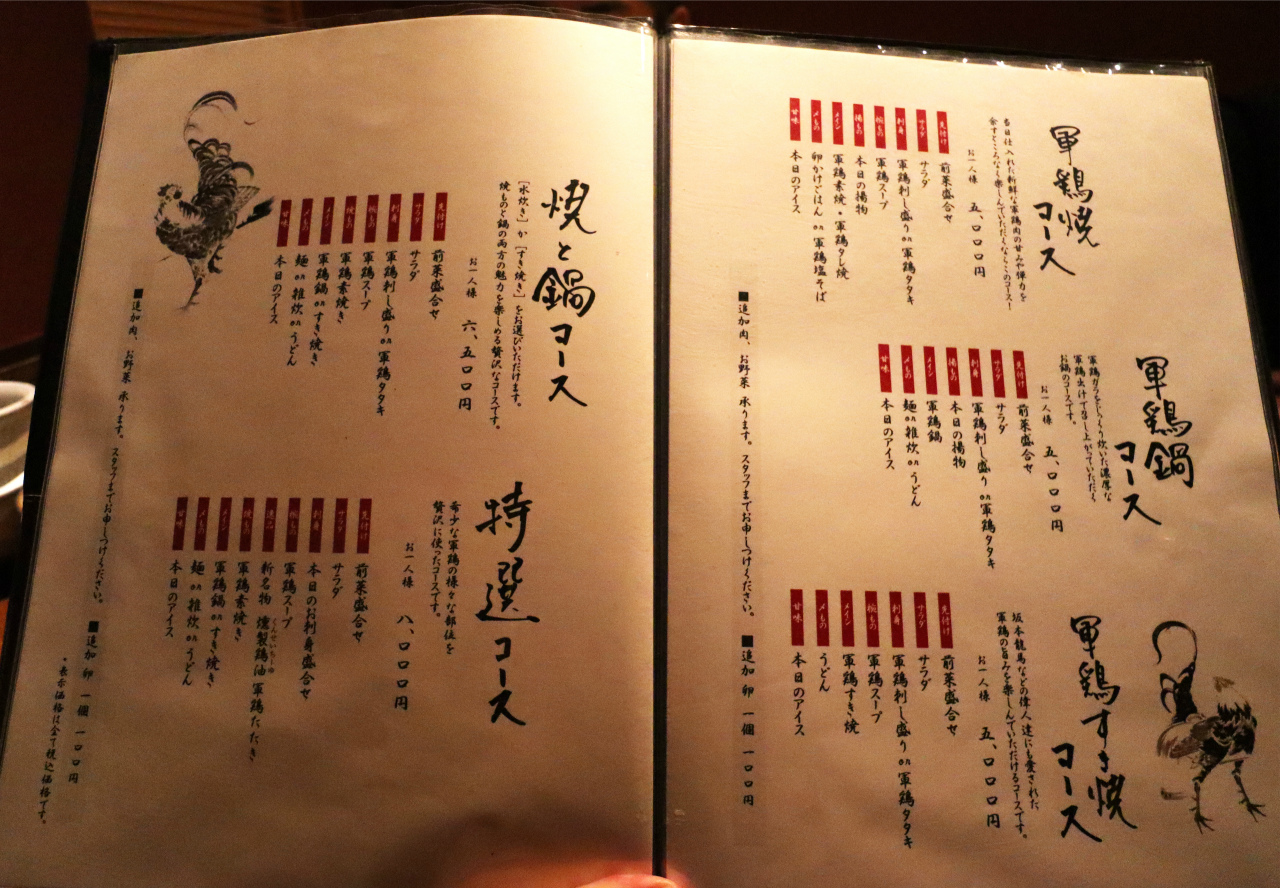 軍鶏焼
コース
当日仕入れた新鮮な軍鶏肉の甘みや弾力を
余すところなく楽しんでいただくならこのコース!
お一人様 五、〇〇〇円
先付け 前菜盛合せ
サラダ サラダ
刺身 軍鶏刺し盛り or 軍鶏タタキ
椀もの 軍鶏スープ
揚もの 本日の揚物
メイン 軍鶏素焼・軍鶏タレ焼
〆もの 卵かけごはん or 軍鶏塩そば
甘味 本日のアイス
軍鶏鍋
コース
軍鶏ガラをじっくり炊いた濃厚な
軍鶏出汁で召し上がっていただく
お鍋のコースです。
お一人様 五、〇〇〇円
先付け 前菜盛合せ
サラダ サラダ
刺身 軍鶏刺し盛り or 軍鶏タタキ
揚もの 本日の揚物
メイン 軍鶏鍋
〆もの 麺 or 雑炊 or うどん
甘味 本日のアイス
軍鶏すき焼
コース
坂本龍馬などの偉人達にも愛された
軍鶏の旨みを楽しんでいただけるコースです。
お一人様 五、〇〇〇円
先付け 前菜盛合せ
サラダ サラダ
刺身 軍鶏刺し盛り or 軍鶏タタキ
椀もの 軍鶏スープ
メイン 軍鶏すき焼
〆もの うどん
甘味 本日のアイス
■追加肉、お野菜 承ります。スタッフまでお申しつけください。 ■追加 卵 一個 一〇〇円
焼と鍋コース
[水炊き]か[すき焼き]をお選びいただけます。
焼ものと鍋の両方の魅力を楽しめる贅沢なコースです。
お一人様 六、五〇〇円
先付け 前菜盛合せ
サラダ サラダ
刺身 軍鶏刺し盛り or 軍鶏タタキ
椀もの 軍鶏スープ
焼もの 軍鶏素焼き
メイン 軍鶏鍋 or すき焼き
〆もの 麺 or 雑炊 or うどん
甘味 本日のアイス
特選コース
希少な軍鶏の様々な部位を
贅沢に使ったコースです。
お一人様 八、〇〇〇円
先付け 前菜盛合せ
サラダ サラダ
刺身 本日のお刺身盛合せ
椀もの 軍鶏スープ
逸品 新名物 燻製鶏油 軍鶏たたき
くんせいちーゆ
焼もの 軍鶏素焼き
メイン 軍鶏鍋 or すき焼き
〆もの 麺 or 雑炊 or うどん
甘味 本日のアイス
■追加肉、お野菜 承ります。スタッフまでお申しつけください。 ■追加 卵 一個 一〇〇円
・表示価格は全て税込価格です。